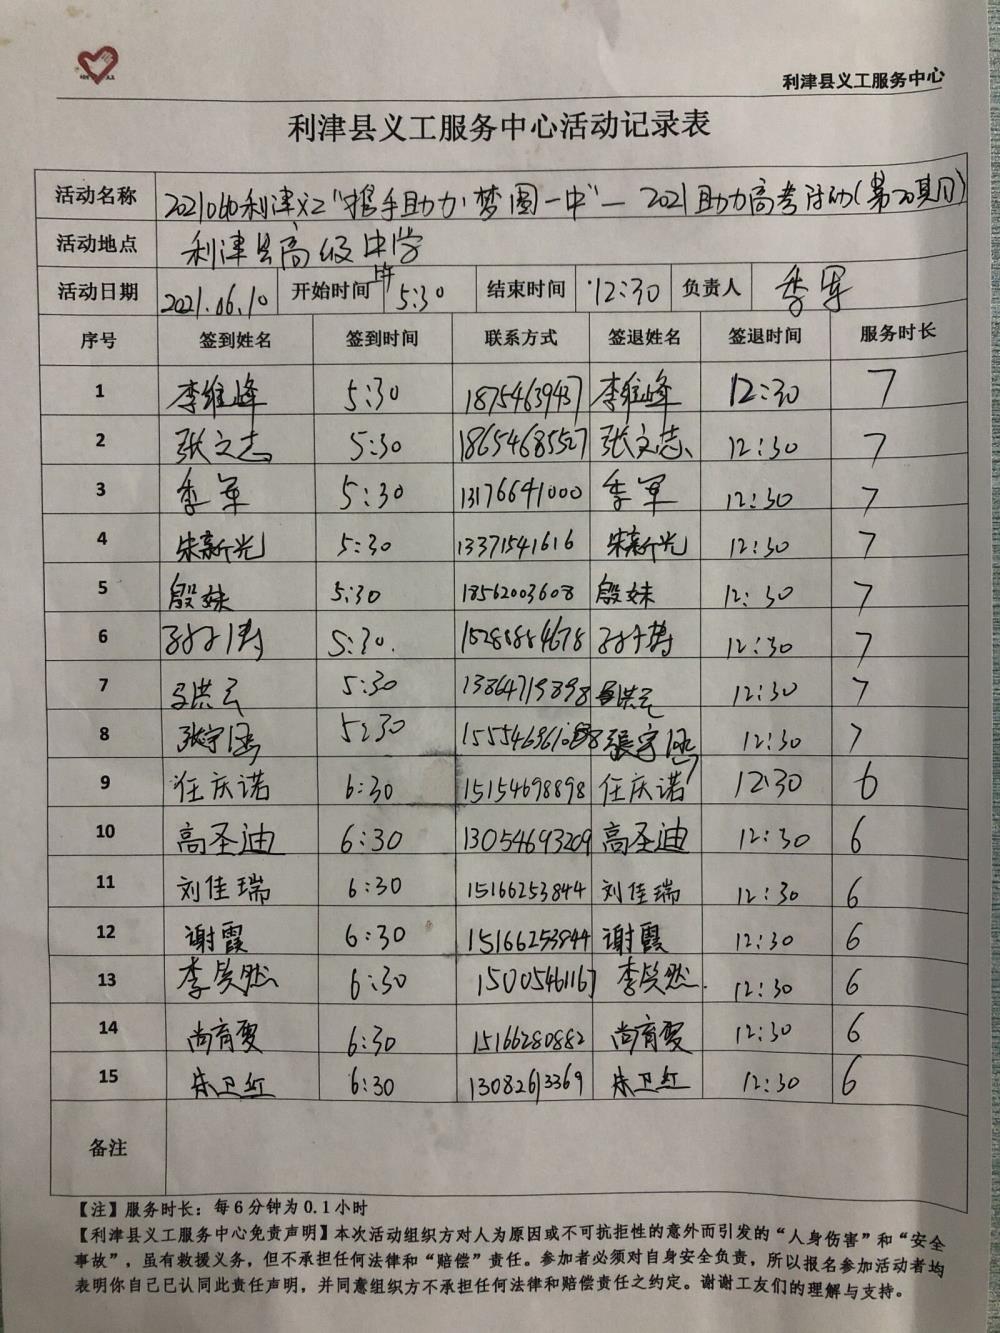 利津县义工服务中心
利津县义工服务中心活动记录表
活动名称 2021060利津义工"携手助力·梦圆一中"—2021助力高考活动(第20期)
活动地点 利津县高级中学
活动日期 2021.06.10 开始时间 5:30 结束时间 12:30 负责人 季军
序号 签到姓名 签到时间 联系方式 签退姓名 签退时间 服务时长
1 李维峰 5:30 18754639437 李维峰 12:30 7
2 张文志 5:30 18654685527 张文志 12:30 7
3 季军 5:30 13176641000 季军 12:30 7
4 朱新光 5:30 13371541616 朱新光 12:30 7
5 殷妹 5:30 18562003608 殷妹 12:30 7
6 5:30. 15288884678 12:30 7
7 马洪云 5:30 13864719898 马洪云 12:30 7
8 张宇涵 5:30 張宇涵 12:30 7
9 任庆诺 6:30 15154698898 任庆诺 12:30 6
10 高圣迪 6:30 13054693209 高圣迪 12:30 6
11 刘佳瑞 6:30 15166253844 刘佳瑞 12:30 6
12 谢霞 6:30 15166253844 谢霞 12:30 6
13 李笑然 6:30 15005461167 李笑然. 12:30 6
14 尚育雯 6:30 15166280882 尚育雯 12:30 6
15 朱卫红 6:30 13082613369 朱卫红 12:30 6
备注
【注】服务时长：每6分钟为0.1小时
【利津县义工服务中心免责声明】本次活动组织方对人为原因或不可抗拒性的意外而引发的“人身伤害”和“安全
事故”，虽有救援义务，但不承担任何法律和“赔偿”责任。参加者必须对自身安全负责，所以报名参加活动者均
表明你自己已认同此责任声明，并同意组织方不承担任何法律和赔偿责任之约定。谢谢工友们的理解与支持。